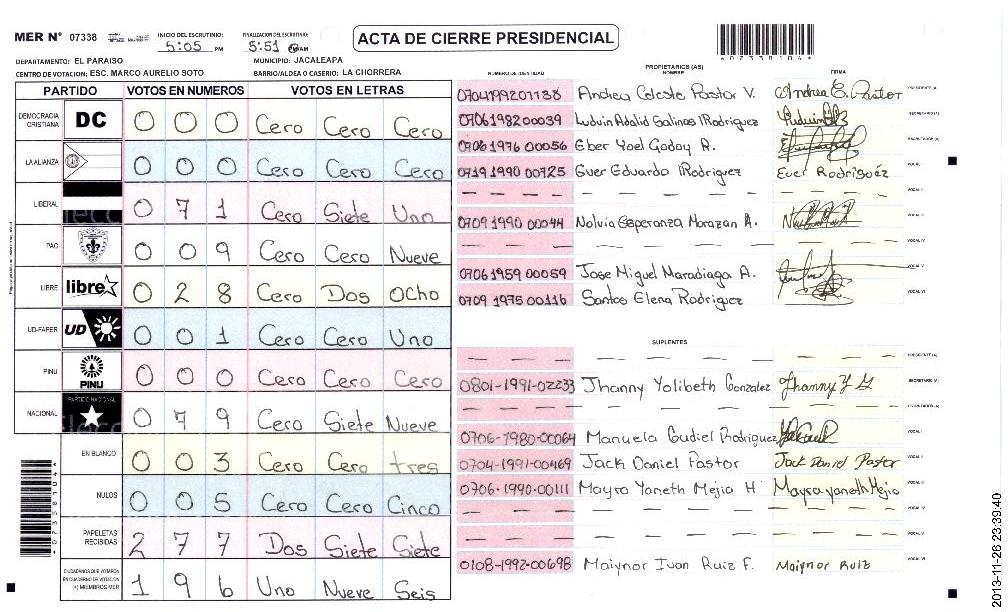 MER N° 07338
INICIO DEL ESCRUTINIO: 5:05 PM
FINALIZACION DEL ESCRUTINIO: 5:51 AM
ACTA DE CIERRE PRESIDENCIAL
*07338104*
DEPARTAMENTO: EL PARAISO
MUNICIPIO: JACALEAPA
CENTRO DE VOTACION: ESC. MARCO AURELIO SOTO
BARRIO/ALDEA O CASERIO: LA CHORRERA
PARTIDO VOTOS EN NUMEROS VOTOS EN LETRAS
DEMOCRACIA CRISTIANA DC 0 0 0 Cero Cero Cero
LA ALIANZA 0 0 0 Cero Cero Cero
LIBERAL 0 7 1 Cero Siete Uno
PAC 0 0 9 Cero Cero Nueve
LIBRE libre 0 2 8 Cero Dos Ocho
UD-FAPER UD 0 0 1 Cero Cero Uno
PINU PINU 0 0 0 Cero Cero Cero
NACIONAL PARTIDO NACIONAL 0 7 9 Cero Siete Nueve
EN BLANCO 0 0 3 Cero Cero tres
NULOS 0 0 5 Cero Cero Cinco
PAPELETAS RECIBIDAS 2 7 7 Dos Siete Siete
CIUDADANOS QUE VOTARON EN CUADERNO DE VOTACION (+) MIEMBROS MER 1 9 6 Uno Nueve Seis
PROPIETARIOS (AS)
NUMERO DE IDENTIDAD NOMBRE FIRMA
0704199201138 Andrea Celeste Pastor V. Andrea C. Pastor PRESIDENTE (A)
0706198200039 Luduin Adalid Salinas Rodriguez SECRETARIO (A)
0706 1976 00056 Eber Yoel Godoy R. ESCRUTADOR (A)
0719 1990 00725 Ever Eduardo Rodriguez Ever Rodriguéz VOCAL I
— — — — VOCAL II
0709 1990 00044 Nolvia Esperanza Morazan A. VOCAL III
— — — — VOCAL IV
0706 1959 00059 Jose Miguel Maradiaga A. VOCAL V
0709 1975 00116 Santos Elena Rodriguez VOCAL VI
SUPLENTES
— — — — PRESIDENTE (A)
0801-1991-02233 Jhanny Yolibeth Gonzalez Jhanny Y G SECRETARIO (A)
— — — — ESCRUTADOR (A)
0706-1980-00064 Manuela Gudiel Rodriguez VOCAL I
0704-1991-00469 Jack Daniel Pastor Jack Daniel Pastor VOCAL II
0706-1990-00111 Mayra Yaneth Mejia H Mayra yaneth Mejia VOCAL III
— — — — VOCAL IV
— — — — VOCAL V
0108-1992-00698 Maiynor Ivan Ruiz F. Maiynor Ruiz VOCAL VI
*07338104*
2013-11-26 23:39:40